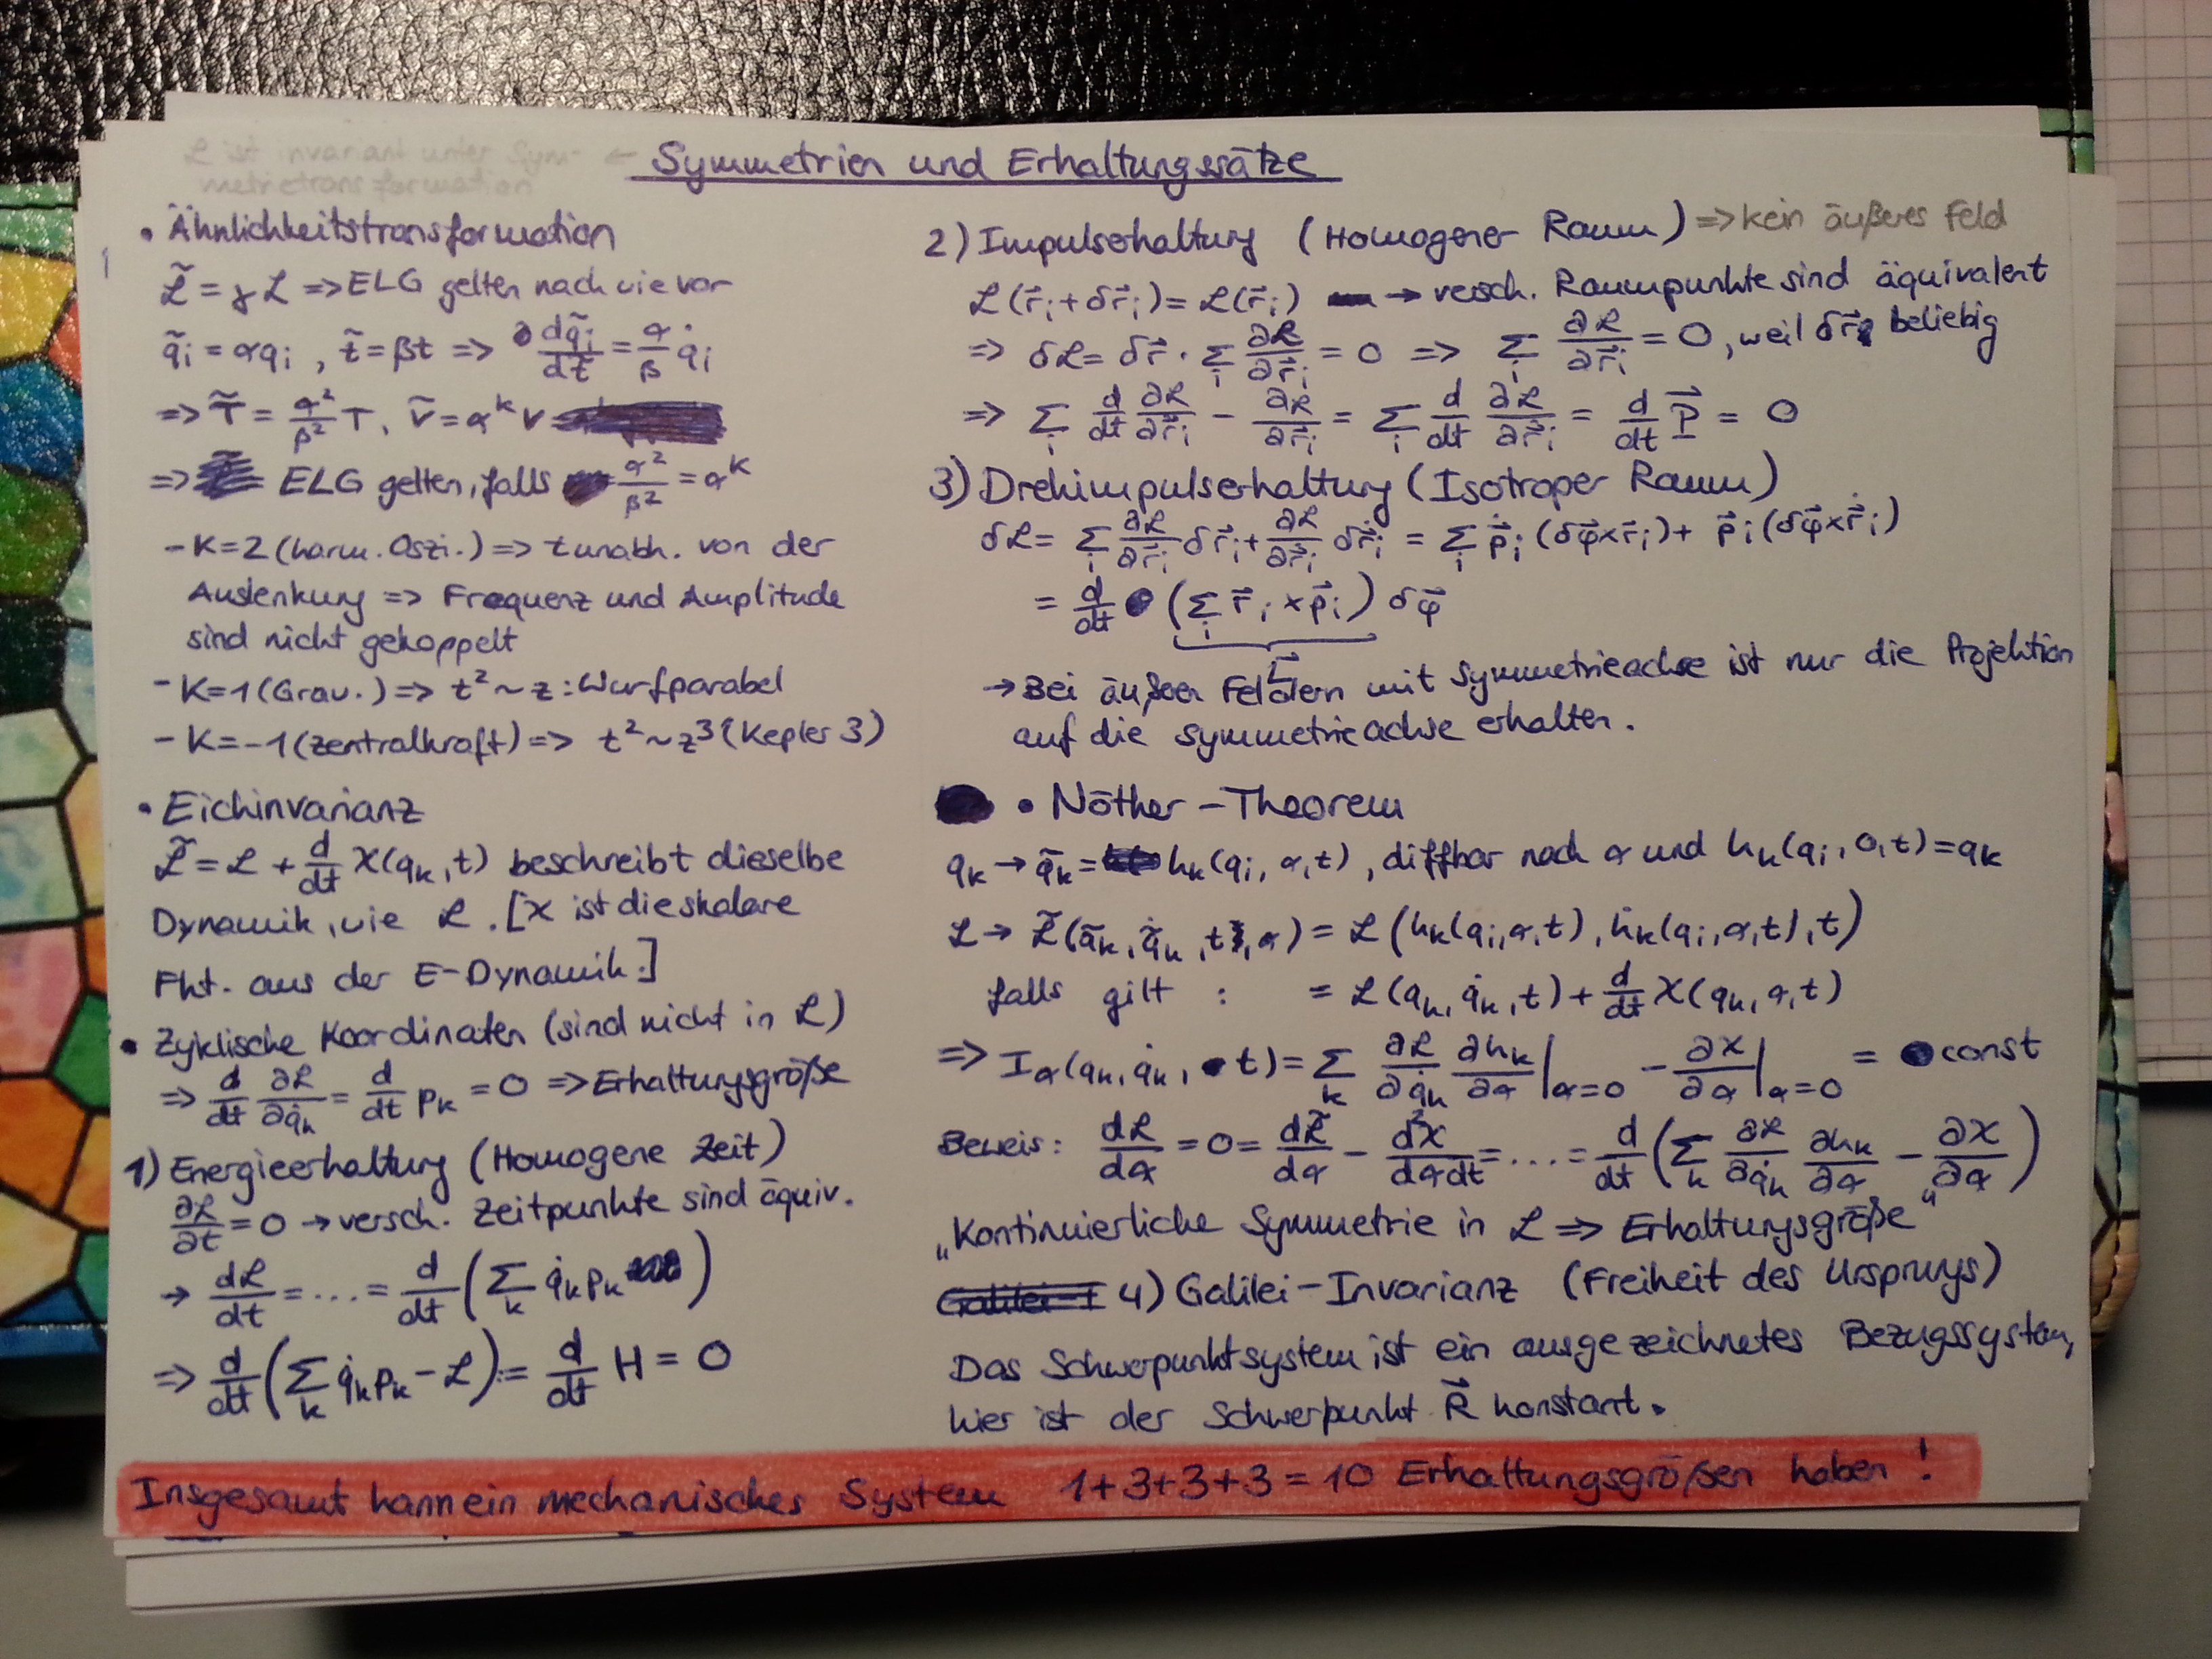 L ist invariant unter Sym- ← Symmetrien und Erhaltungssätze
metrietransformation
• Ähnlichkeitstransformation
L̃ = γ L => ELG gelten nach wie vor
q̃ᵢ = αqᵢ , t̃ = βt => dq̃ᵢ/dt̃ = α/β q̇ᵢ
=> T̃ = α²/β² T, Ṽ = αᵏ V
=> ELG gelten, falls α²/β² = αᵏ
- K=2 (harm. Oszi.) => t unabh. von der
Auslenkung => Frequenz und Amplitude
sind nicht gekoppelt
- K=1 (Grav.) => t² ~ z : Wurfparabel
- K=-1 (Zentralkraft) => t² ~ z³ (Kepler 3)
• Eichinvarianz
L̃ = L + d/dt χ(qₖ, t) beschreibt dieselbe
Dynamik, wie L. [χ ist die skalare
Fkt. aus der E-Dynamik.]
• Zyklische Koordinaten (sind nicht in L)
=> d/dt ∂L/∂q̇ₖ = d/dt pₖ = 0 => Erhaltungsgröße
1) Energieerhaltung (Homogene Zeit)
∂L/∂t = 0 → versch. Zeitpunkte sind äquiv.
→ dL/dt = ... = d/dt (Σₖ q̇ₖ pₖ)
=> d/dt (Σₖ q̇ₖ pₖ - L) = d/dt H = 0
2) Impulserhaltung (Homogener Raum) => kein äußeres Feld
L(r⃗ᵢ + δr⃗ᵢ) = L(r⃗ᵢ) → versch. Raumpunkte sind äquivalent
=> δL = δr⃗ · Σᵢ ∂L/∂r⃗ᵢ = 0 => Σᵢ ∂L/∂r⃗ᵢ = 0, weil δr⃗ beliebig
=> Σᵢ d/dt ∂L/∂r⃗̇ᵢ - ∂L/∂r⃗ᵢ = Σᵢ d/dt ∂L/∂r⃗̇ᵢ = d/dt P⃗ = 0
3) Drehimpulserhaltung (Isotroper Raum)
δL = Σᵢ ∂L/∂r⃗ᵢ δr⃗ᵢ + ∂L/∂r⃗̇ᵢ δr⃗̇ᵢ = Σᵢ p⃗̇ᵢ (δφ⃗×r⃗ᵢ) + p⃗ᵢ (δφ⃗×r⃗̇ᵢ)
= d/dt (Σᵢ r⃗ᵢ × p⃗ᵢ) δφ⃗
L⃗
→ Bei äußeren Feldern mit Symmetrieachse ist nur die Projektion
auf die Symmetrieachse erhalten.
• Nöther-Theorem
qₖ → q̃ₖ = hₖ(qᵢ, α, t), diffbar nach α und hₖ(qᵢ, 0, t) = qₖ
L → L̃(q̃ₖ, q̃̇ₖ, t, α) = L(hₖ(qᵢ, α, t), ḣₖ(qᵢ, α, t), t)
falls gilt : = L(qₖ, q̇ₖ, t) + d/dt χ(qₖ, α, t)
=> I_α(qₖ, q̇ₖ, t) = Σₖ ∂L/∂q̇ₖ ∂hₖ/∂α |α=0 - ∂χ/∂α |α=0 = const
Beweis: dL/dα = 0 = dL̃/dα - d²χ/dαdt = ... = d/dt (Σₖ ∂L/∂q̇ₖ ∂hₖ/∂α - ∂χ/∂α)
„Kontinuierliche Symmetrie in L => Erhaltungsgröße"
4) Galilei-Invarianz (Freiheit des Ursprungs)
Das Schwerpunktsystem ist ein ausgezeichnetes Bezugssystem,
hier ist der Schwerpunkt R⃗ konstant.
Insgesamt kann ein mechanisches System 1+3+3+3 = 10 Erhaltungsgrößen haben !